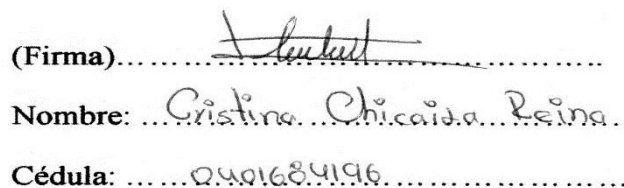 (Firma)
Nombre: Cristina Chicaiza Reina
Cédula: 0401684196